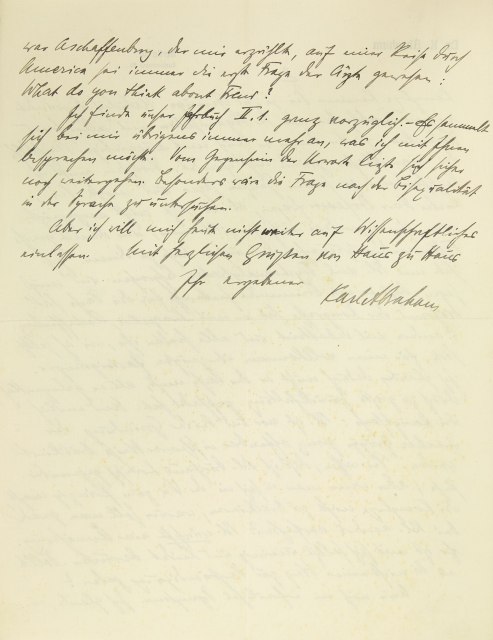 war Aschaffenburg, der mir erzählte, auf einer Reise durch
America sei immer die erste Frage der Ärzte gewesen:
What do you think about Freud?
Ich finde unser Jahrbuch II.1. ganz vorzüglich. – Es sammelt
sich bei mir übrigens immer mehr an, was ich mit Ihnen
besprechen möchte. Vom Gegensinn der Urworte ließe sich sicher
noch weitergehen. Besonders wäre die Frage nach der Bisexualität
in der Sprache zu untersuchen.
Aber ich will mich heute nicht weiter auf Wissenschaftliches
einlassen. Mit herzlichen Grüßen von Haus zu Haus
Ihr ergebener
Karl Abraham